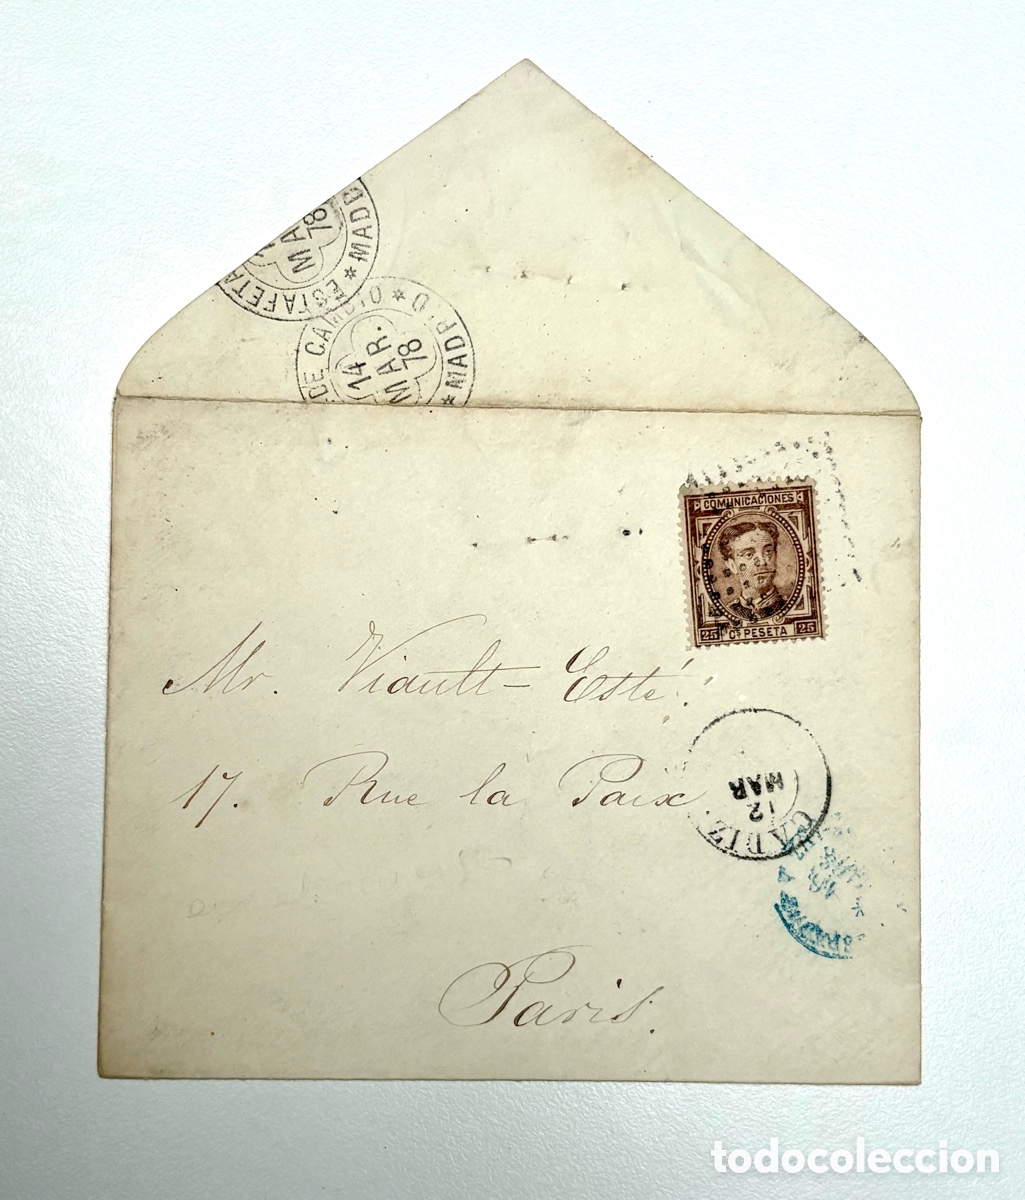 ESTAFETA
MAR
78
* MADR
DE CAMBIO * MADRID *
14
MAR.
78
COMUNICACIONES
25 Cs PESETA 25
Mr. Viault-Esté.
17. Rue la Paix
Paris.
CADIZ.
12
MAR
todocoleccion